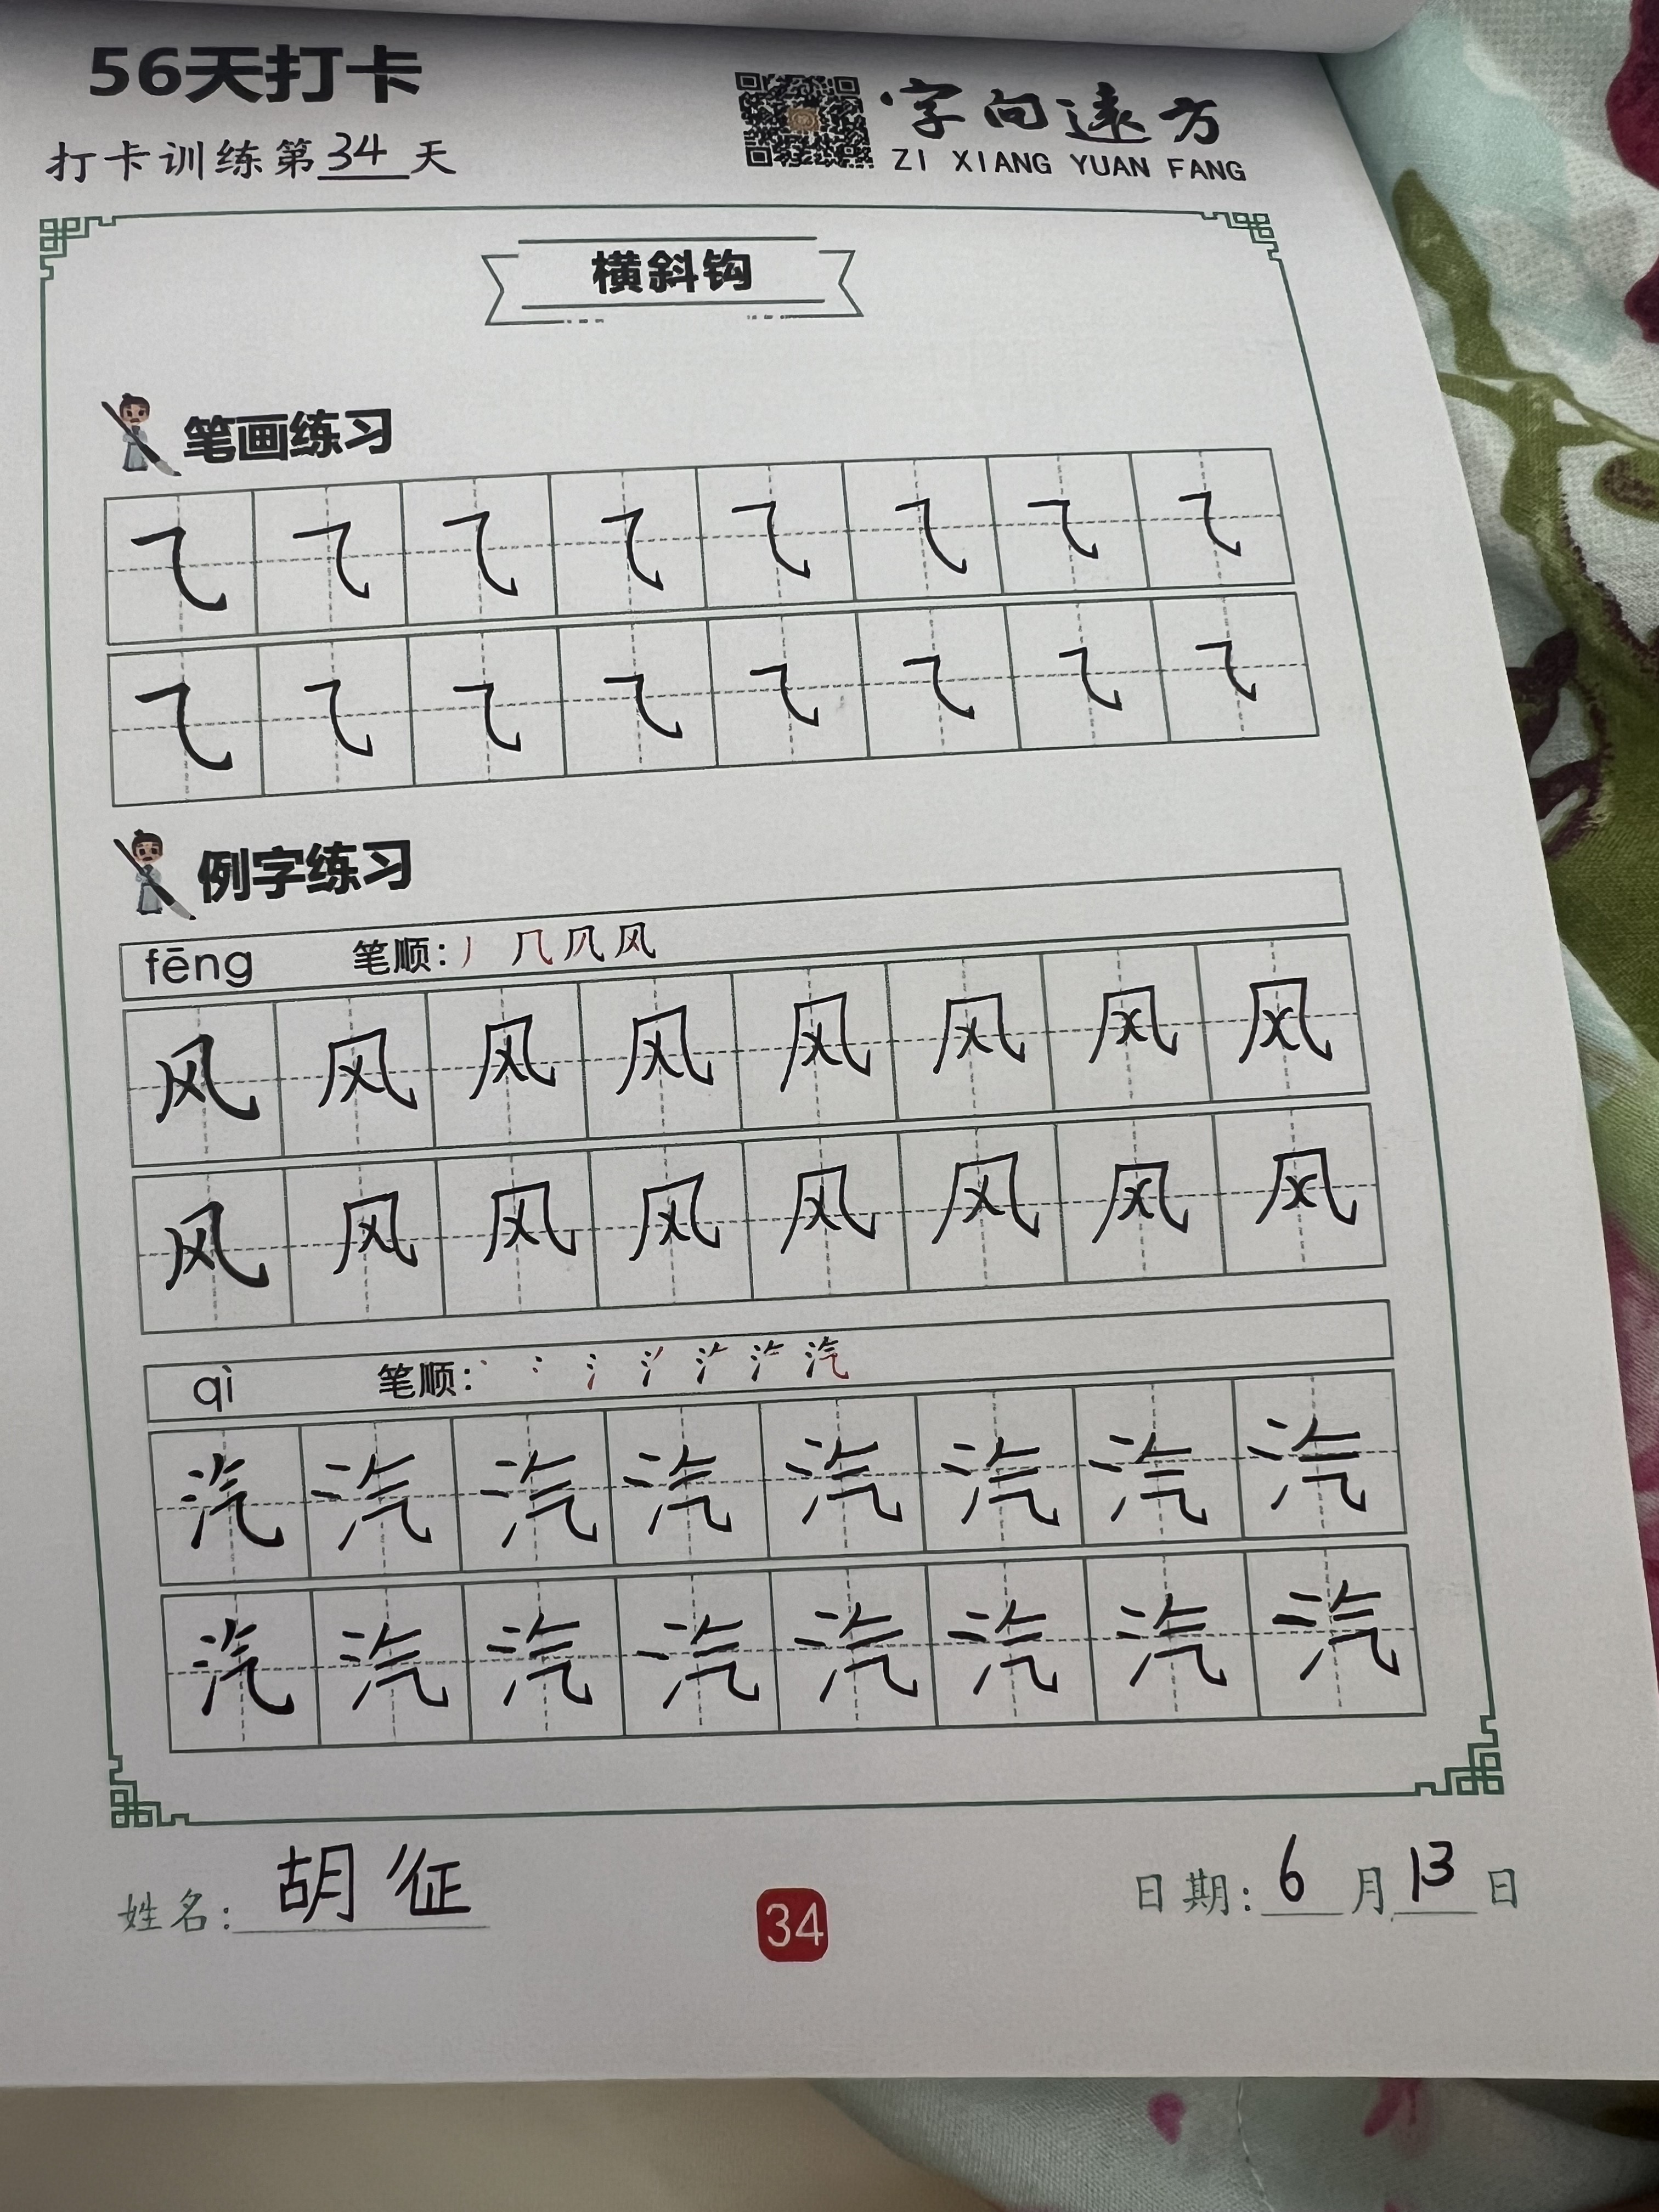 56天打卡
打卡训练第34天
字向远方
ZI XIANG YUAN FANG
横斜钩
笔画练习
例字练习
fēng 笔顺: 丿 几 凡 风
风 风 风 风 风 风 风 风
风 风 风 风 风 风 风 风
qì 笔顺: 汽
汽 汽 汽 汽 汽 汽 汽 汽
汽 汽 汽 汽 汽 汽 汽 汽
姓名: 胡征
34
日期: 6月13日